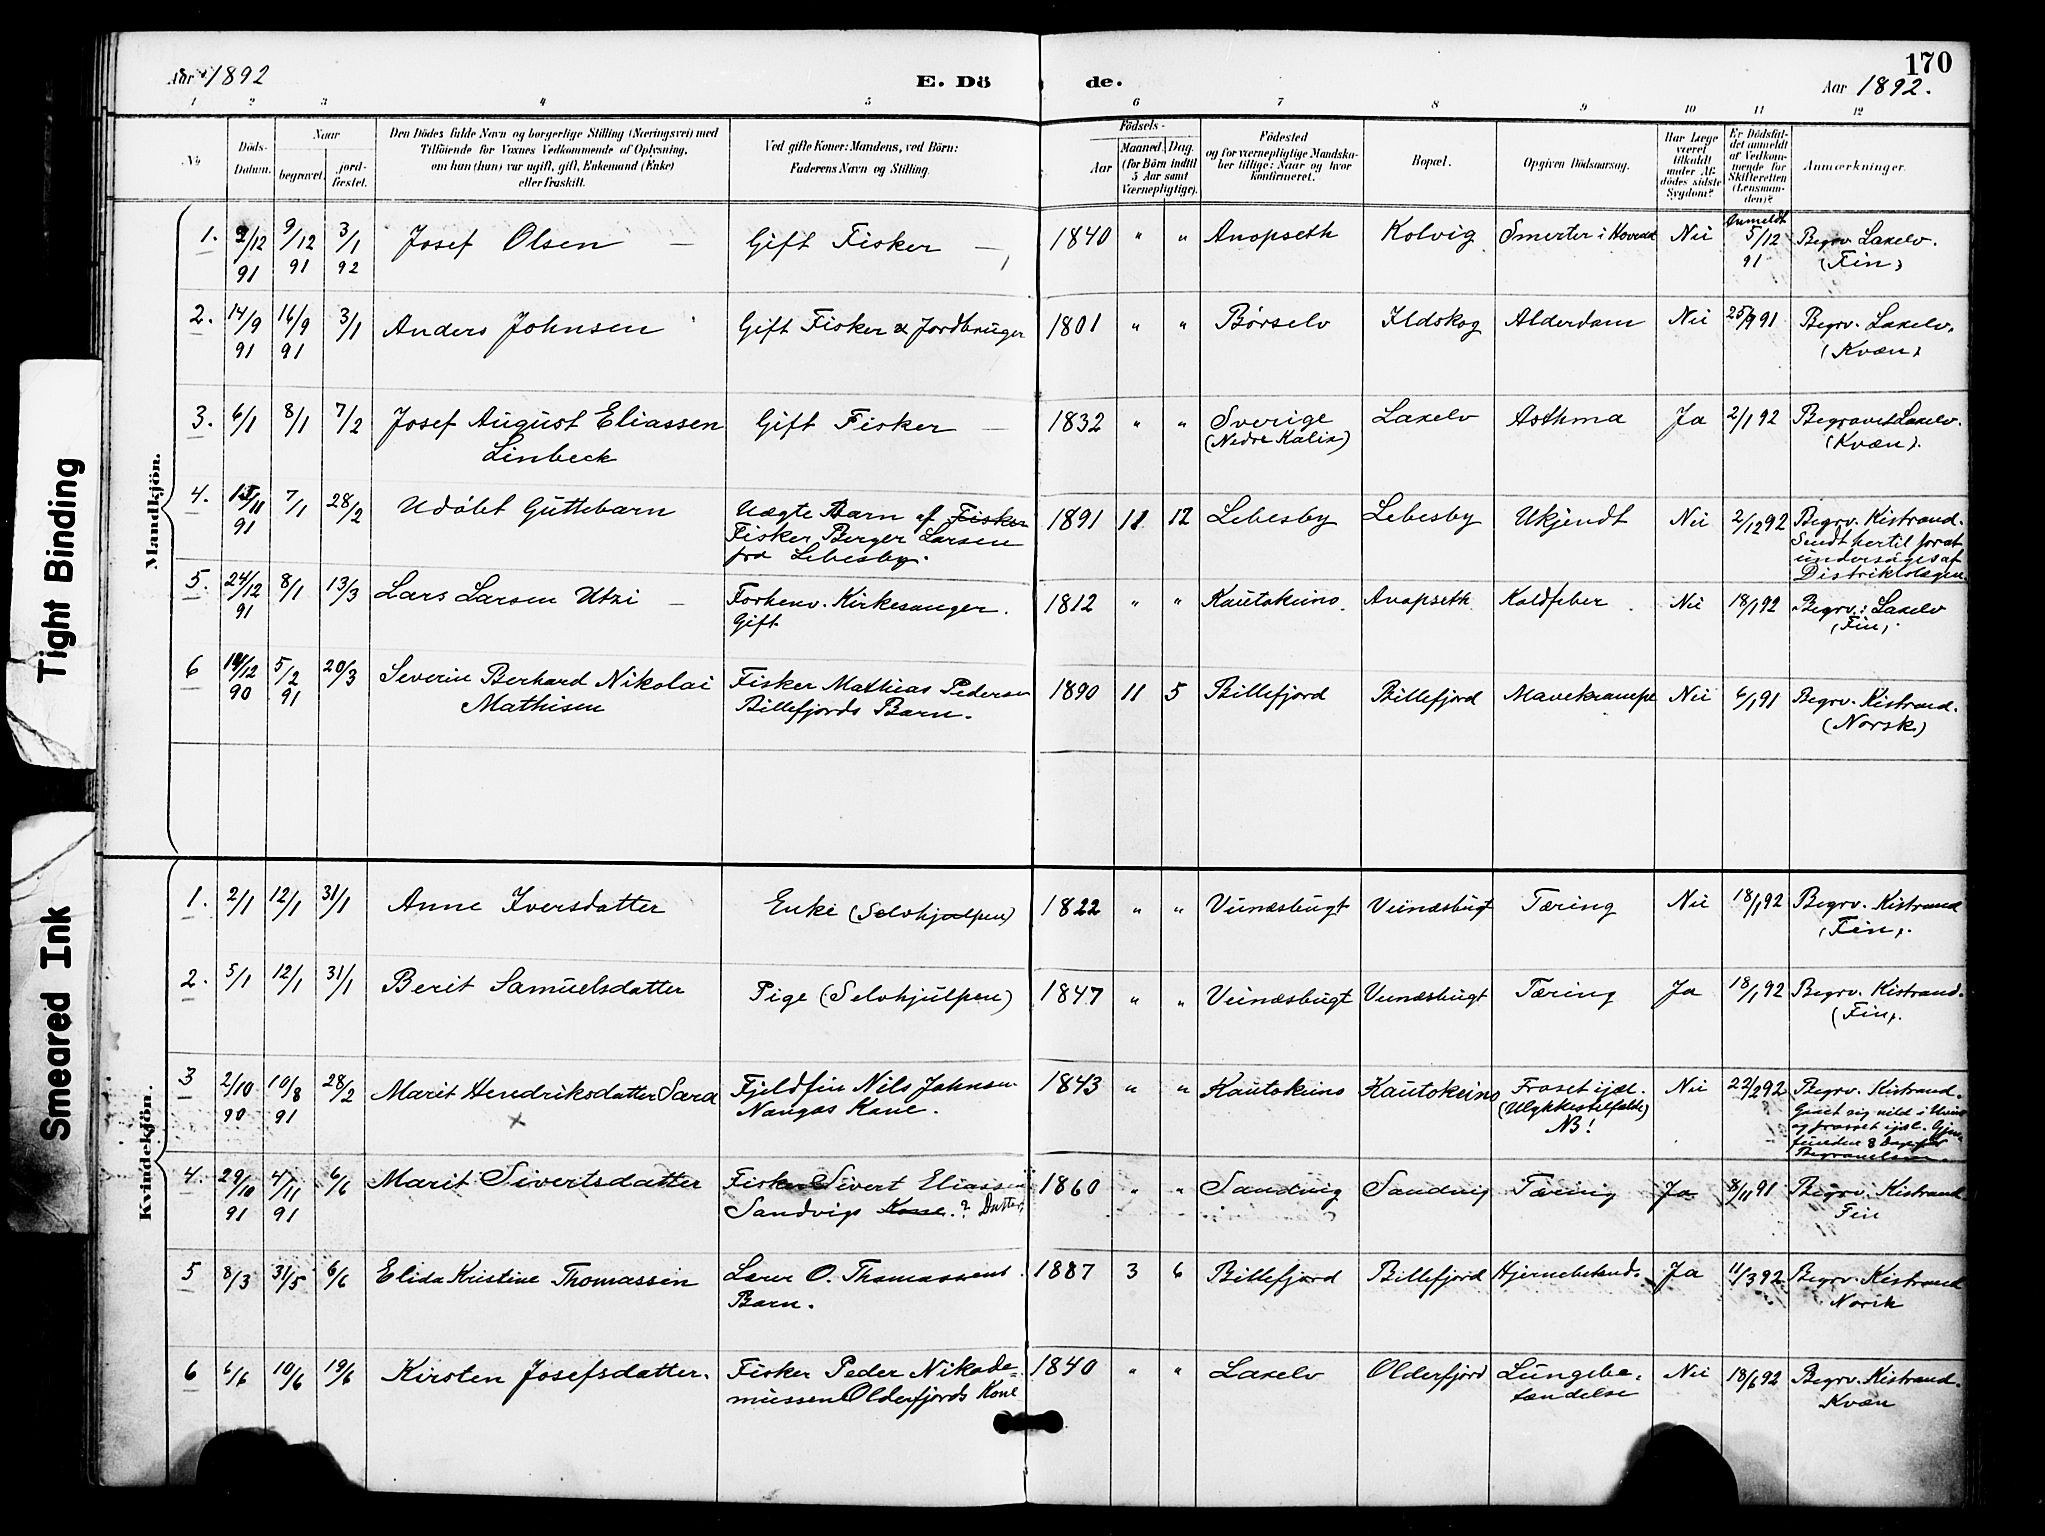 Tight Binding
Smeared Ink
170
Aar 1892
E. Dö de.
Aar 1892.
1 2 3 4 5 6 7 8 9 10 11 12
No
Döds-Datum.
Naar
begravet.
jord-fæstet.
Den Dödes fulde Navn og borgerlige Stilling (Næringsvei) med
Tilföiende for Voxnes Vedkommende af Oplysning,
om han (hun) var ugift, gift, Enkemand (Enke)
eller fraskilt.
Ved gifte Koner: Mandens, ved Börn:
Faderens Navn og Stilling.
Födsels-
Aar
Maaned. Dag.
(for Börn indtil
5 Aar samt
Værnepligtige).
Födested
og for værnepligtige Mandska-
ber tillige: Naar og hvor
konfirmeret.
Bopæl.
Opgiven Dödsaarsag.
Har Læge
været
tilkaldt
under Af-
dödes sidste
Sygdom?
Er Dödsfal-
det anmeldt
af Vedkom-
mende for
Skifteretten
(Lensman-
den)?
Anmærkninger.
Mandkjön.
1. 3/12 91 9/12 91 3/1 92 Josef Olsen — Gift Fisker — 1840 " " Avopseth Kolvig Smerter i Hovedet Nei Anmeldt 5/12 91 Begrv Laxelv.
(Fin)
2. 14/9 91 16/9 91 3/1 Anders Johnsen Gift Fisker & Jordbruger 1801 " " Børselv Ildskog Alderdom Nei 25/9 91 Begrv. Laxelv.
(Kvæn)
3. 6/1 8/1 7/2 Josef August Eliassen Gift Fisker — 1832 " " Sverige Laxelv Asthma Ja 2/1 92 Begravet Laxelv.
Linbeck (Nedre Kalix) (Kvæn).
4. 15/11 91 7/1 28/2 Udøbt Guttebarn Uægte Barn af Fisker 1891 11 12 Lebesby Lebesby Ukjendt Nei 2/12 92 Begrv. Kistrand.
Fisker Berger Larsen Sendt hertil for at
fra Lebesby. undersøges af
Distriktslægen.
5. 24/12 91 8/1 13/3 Lars Larsen Utzi — Forhenv. Kirkesanger. 1812 " " Kautokeino. Avopseth Koldfeber Nei 18/1 92 Begrv: Laxelv
Gift (Fin).
6 14/12 90 5/2 91 20/3 Severin Berhard Nikolai Fisker Mathias Pedersen 1890 11 5 Billefjord Billefjord Mavekrampe Nei 6/1 91 Begrv. Kistrand.
Mathisen Billefjords Barn. (Norsk)
Kvindekjön.
1. 2/1 12/1 31/1 Anne Iversdatter Enke (Selvhjulpen) 1822 " " Veinæsbugt Veinæsbugt Tæring Nei 18/1 92 Begrv. Kistrand
(Fin).
2. 5/1 12/1 31/1 Berit Samuelsdatter Pige (Selvhjulpen) 1847 " " Veinæsbugt Veinæsbugt Tæring Ja 18/1 92 Begrv. Kistrand.
(Fin).
3 2/10 90 10/8 91 28/2 Marit Hendriksdatter Sara Fjeldfin Nils Johnsen 1843 " " Kautokeino Kautokeino Froset ihjæl. Nei 22/2 92 Begrv. Kistrand.
× Nangas Kone. (Ulykkestilfælde) Gaaet sig vild i
NB! og frosset ihjæl.
funden 8 Dage før
Begravelsen.
4 29/10 91 4/11 91 6/6 Marit Sivertsdatter Fisker Sivert Eliassen 1860 " " Sandvig Sandvig Tæring Ja 8/11 91 Begrv. Kistrand
Sandvigs Kone.? Datter, Fin
5 8/3 31/5 6/6 Elida Kristine Thomassen Lærer O. Thomassens 1887 3 6 Billefjord Billefjord Hjernebetænd. Ja 11/3 92 Begrv. Kistrand
Barn. Norsk
6 6/6 10/6 19/6 Kirsten Josefsdatter. Fisker Peder Nikode- 1840 " " Laxelv Olderfjord Lungebe- Nei 18/6 92 Begrv. Kistrand.
mussen Olderfjords Kone tændelse Kvæn